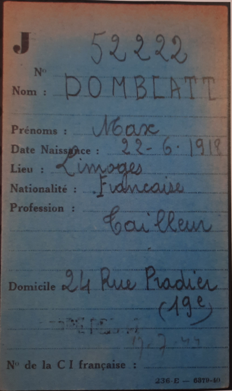 J 52222
N°
Nom : DOMBLATT
Prénoms : Max
Date Naissance : 22-6-1918
Lieu : Limoges
Nationalité : Française
Profession :
Tailleur
Domicile : 24 Rue Pradier
(19e)
N° de la CI française :
238-E — 8859-40